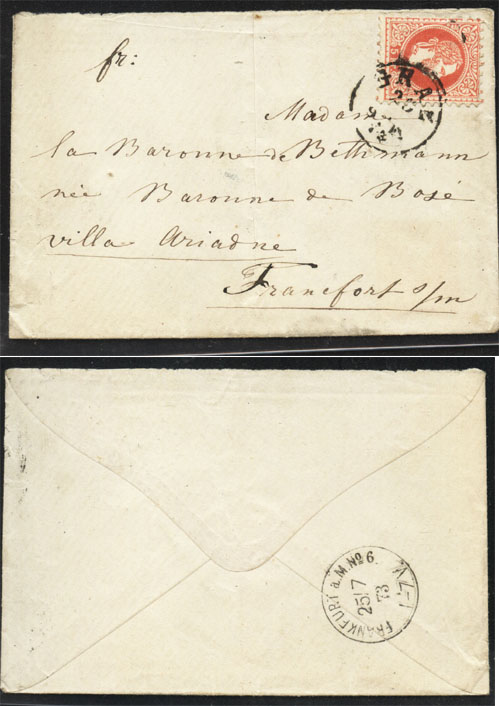 fr:
GRAZ
Madame
la Baronne de Bethmann
née Baronne de Bosé
villa Ariadne
Francfort s/m
FRANKFURT a.M No 6.
25 7
73